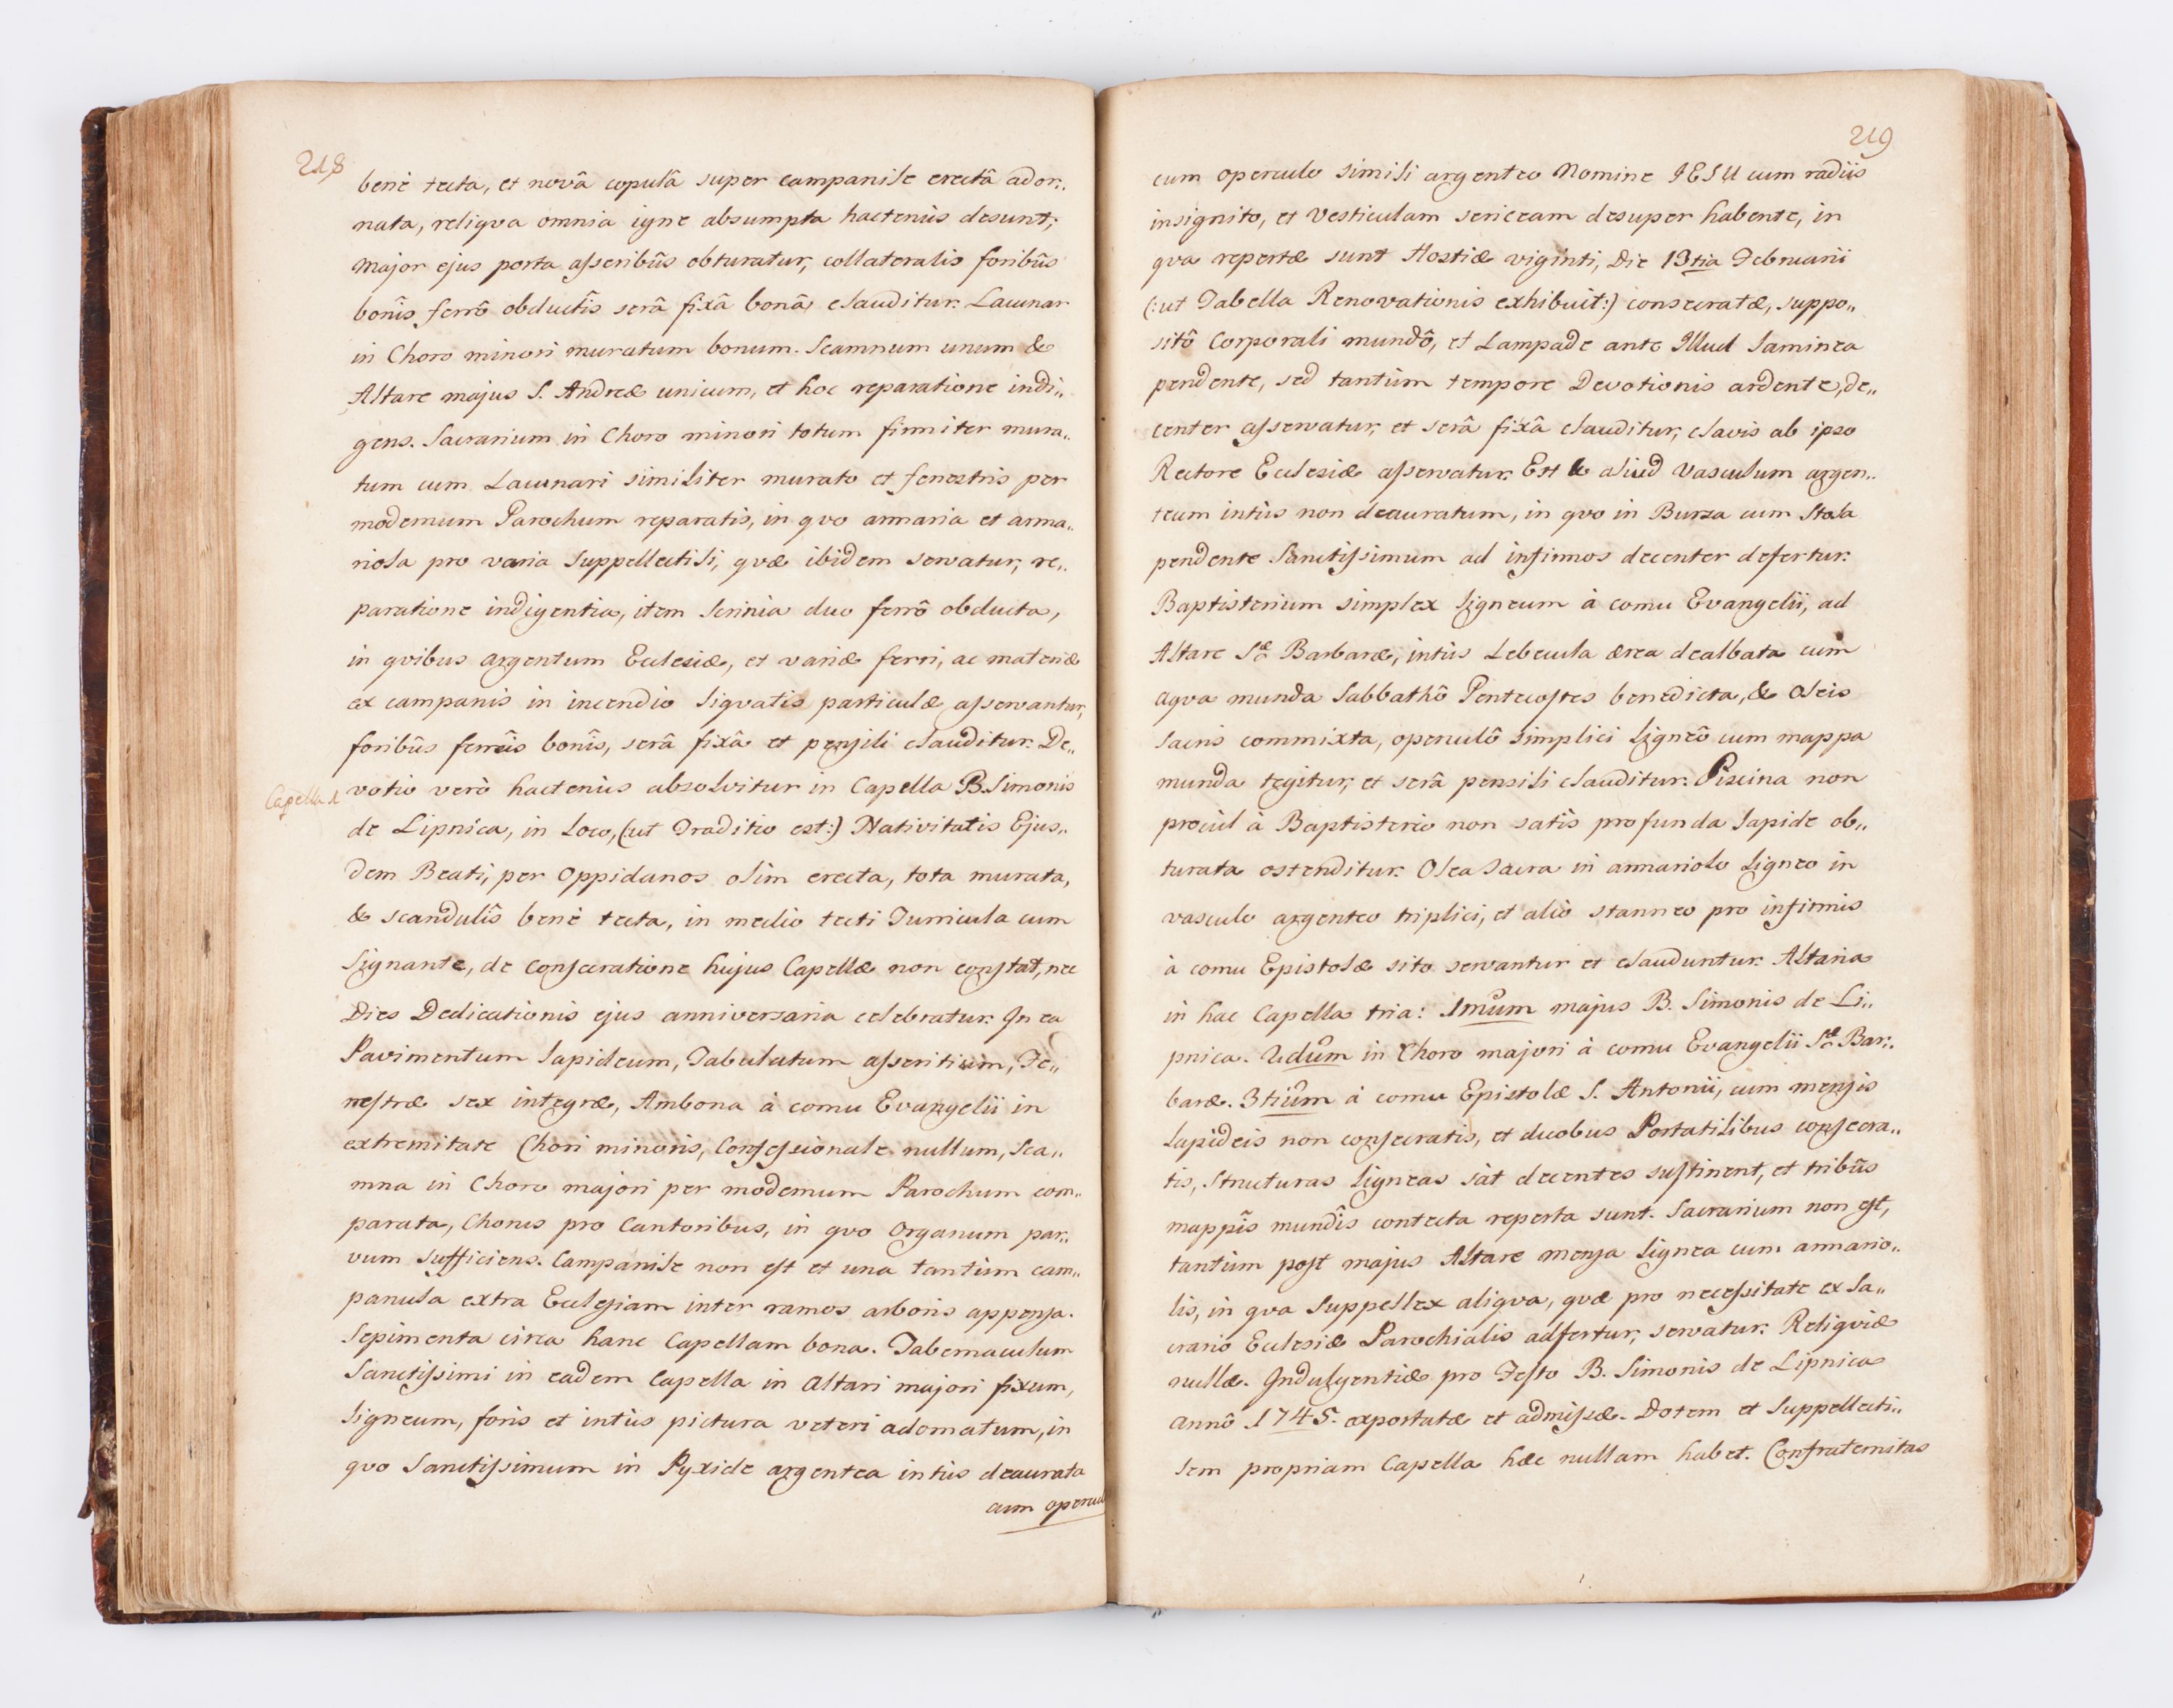 218
benè tecta, et novâ copulâ super campanile erectâ ador„
nata, reliqva omnia igne absumpta hactenùs desunt;
Major ejus porta asseribûs obturatur, collateralis foribûs
bonîs ferrô obductîs serâ fixâ bonâ clauditur. Lacunar
in Choro minori muratum bonum. Scamnum unum &
Altare majus S. Andreæ unicum, et hoc reparatione indi„
gens. Sacrarium in Choro minori totum firmiter mura„
tum cum Lacunari similiter murato et fenestris per
modernum Parochum reparatis, in qvo armaria et arma„
riola pro varia Suppellectili, qvæ ibidem servatur, re„
paratione indigentia, item Scrinia duo ferrô obducta,
in qvibus argentum Ecclesiæ, et variæ ferri, ac materiæ
ex campanis in incendio liqvatis particulæ asservantur,
foribûs ferreîs bonîs, serâ fixâ et pensili clauditur. De„
Capella 1
votio verò hactenùs absolvitur in Capella B. Simonis
de Lipnica, in Loco, (:ut Traditio est:) Nativitatis Ejus„
dem Beati, per Oppidanos olim erecta, tota murata,
& scandulîs benè tecta, in medio tecti Turricula cum
Signante, de Consecratione hujus Capellæ non constat, nec
Dies Dedicationis ejus anniversaria celebratur. In ea
Pavimentum lapideum, Tabulatum asseritium, Fe„
nestræ sex integræ, Ambona à cornu Evangelii in
extremitate Chori minoris, Confessionale nullum, Sca„
mna in Choro majori per modernum Parochum com„
parata, Chorus pro Cantoribus, in qvo Organum par„
vum sufficiens. Campanile non est et una tantùm cam„
panula extra Ecclesiam inter ramos arboris appensa.
Sepimenta circa hanc Capellam bona. Tabernaculum
Sanctissimi in eadem Capella in Altari majori fixum,
ligneum, foris et intùs pictura veteri adornatum, in
qvo Sanctissimum in Pyxide argentea intùs deaurata
cum opercul
219
cum operculo simili argenteo Nomine IESU cum radiis
insignito, et Vesticulam sericeam desuper habente, in
qva repertæ sunt Hostiæ viginti, Die 13tia Februarii
(:ut Tabella Renovationis exhibuit:) consecratæ, suppo„
sitô Corporali mundô, et Lampade ante Illud laminea
pendente, sed tantùm tempore Devotionis ardente, de„
center asservatur, et serâ fixâ clauditur, clavis ab ipso
Rectore Ecclesiæ asservatur. Est & aliud Vasculum argen„
teum intùs non deauratum, in qvo in Bursa cum Stola
pendente Sanctissimum ad infirmos decenter defertur.
Baptisterium simplex ligneum à cornu Evangelii, ad
Altare Sæ Barbaræ, intùs Lebecula ærea dealbata cum
aqva munda Sabbathô Pentecostes benedicta, & Oleis
Sacris commixta, operculô simplici ligneô cum mappa
munda tegitur, et serâ pensili clauditur. Piscina non
procùl à Baptisterio non satis profunda lapide ob„
turata ostenditur. Olea Sacra in armariolo ligneo in
vasculo argenteo triplici, et aliò stanneo pro infirmis
à cornu Epistolæ sito servantur et clauduntur. Altaria
in hac Capella tria: 1mum majus B. Simonis de Li„
pnica. 2dum in Choro majori à cornu Evangelii Sæ Bar„
baræ. 3tium à cornu Epistolæ S. Antonii, cum mensis
lapideis non consecratis, et duobus Portatilibus consecra„
tis, Structuras ligneas sàt decentes sustinent, et tribûs
mappîs mundîs contecta reperta sunt. Sacrarium non est,
tantùm post majus Altare mensa lignea cum armario„
lis, in qva Suppellex aliqva, qvæ pro necessitate ex Sa„
crario Ecclesiæ Parochialis adfertur, servatur. Reliqviæ
nullæ. Indulgentiæ pro Festo B. Simonis de Lipnica
annô 1745. exportatæ et admissæ. Dotem et Suppellecti„
lem propriam Capella hæc nullam habet. Confraternitas